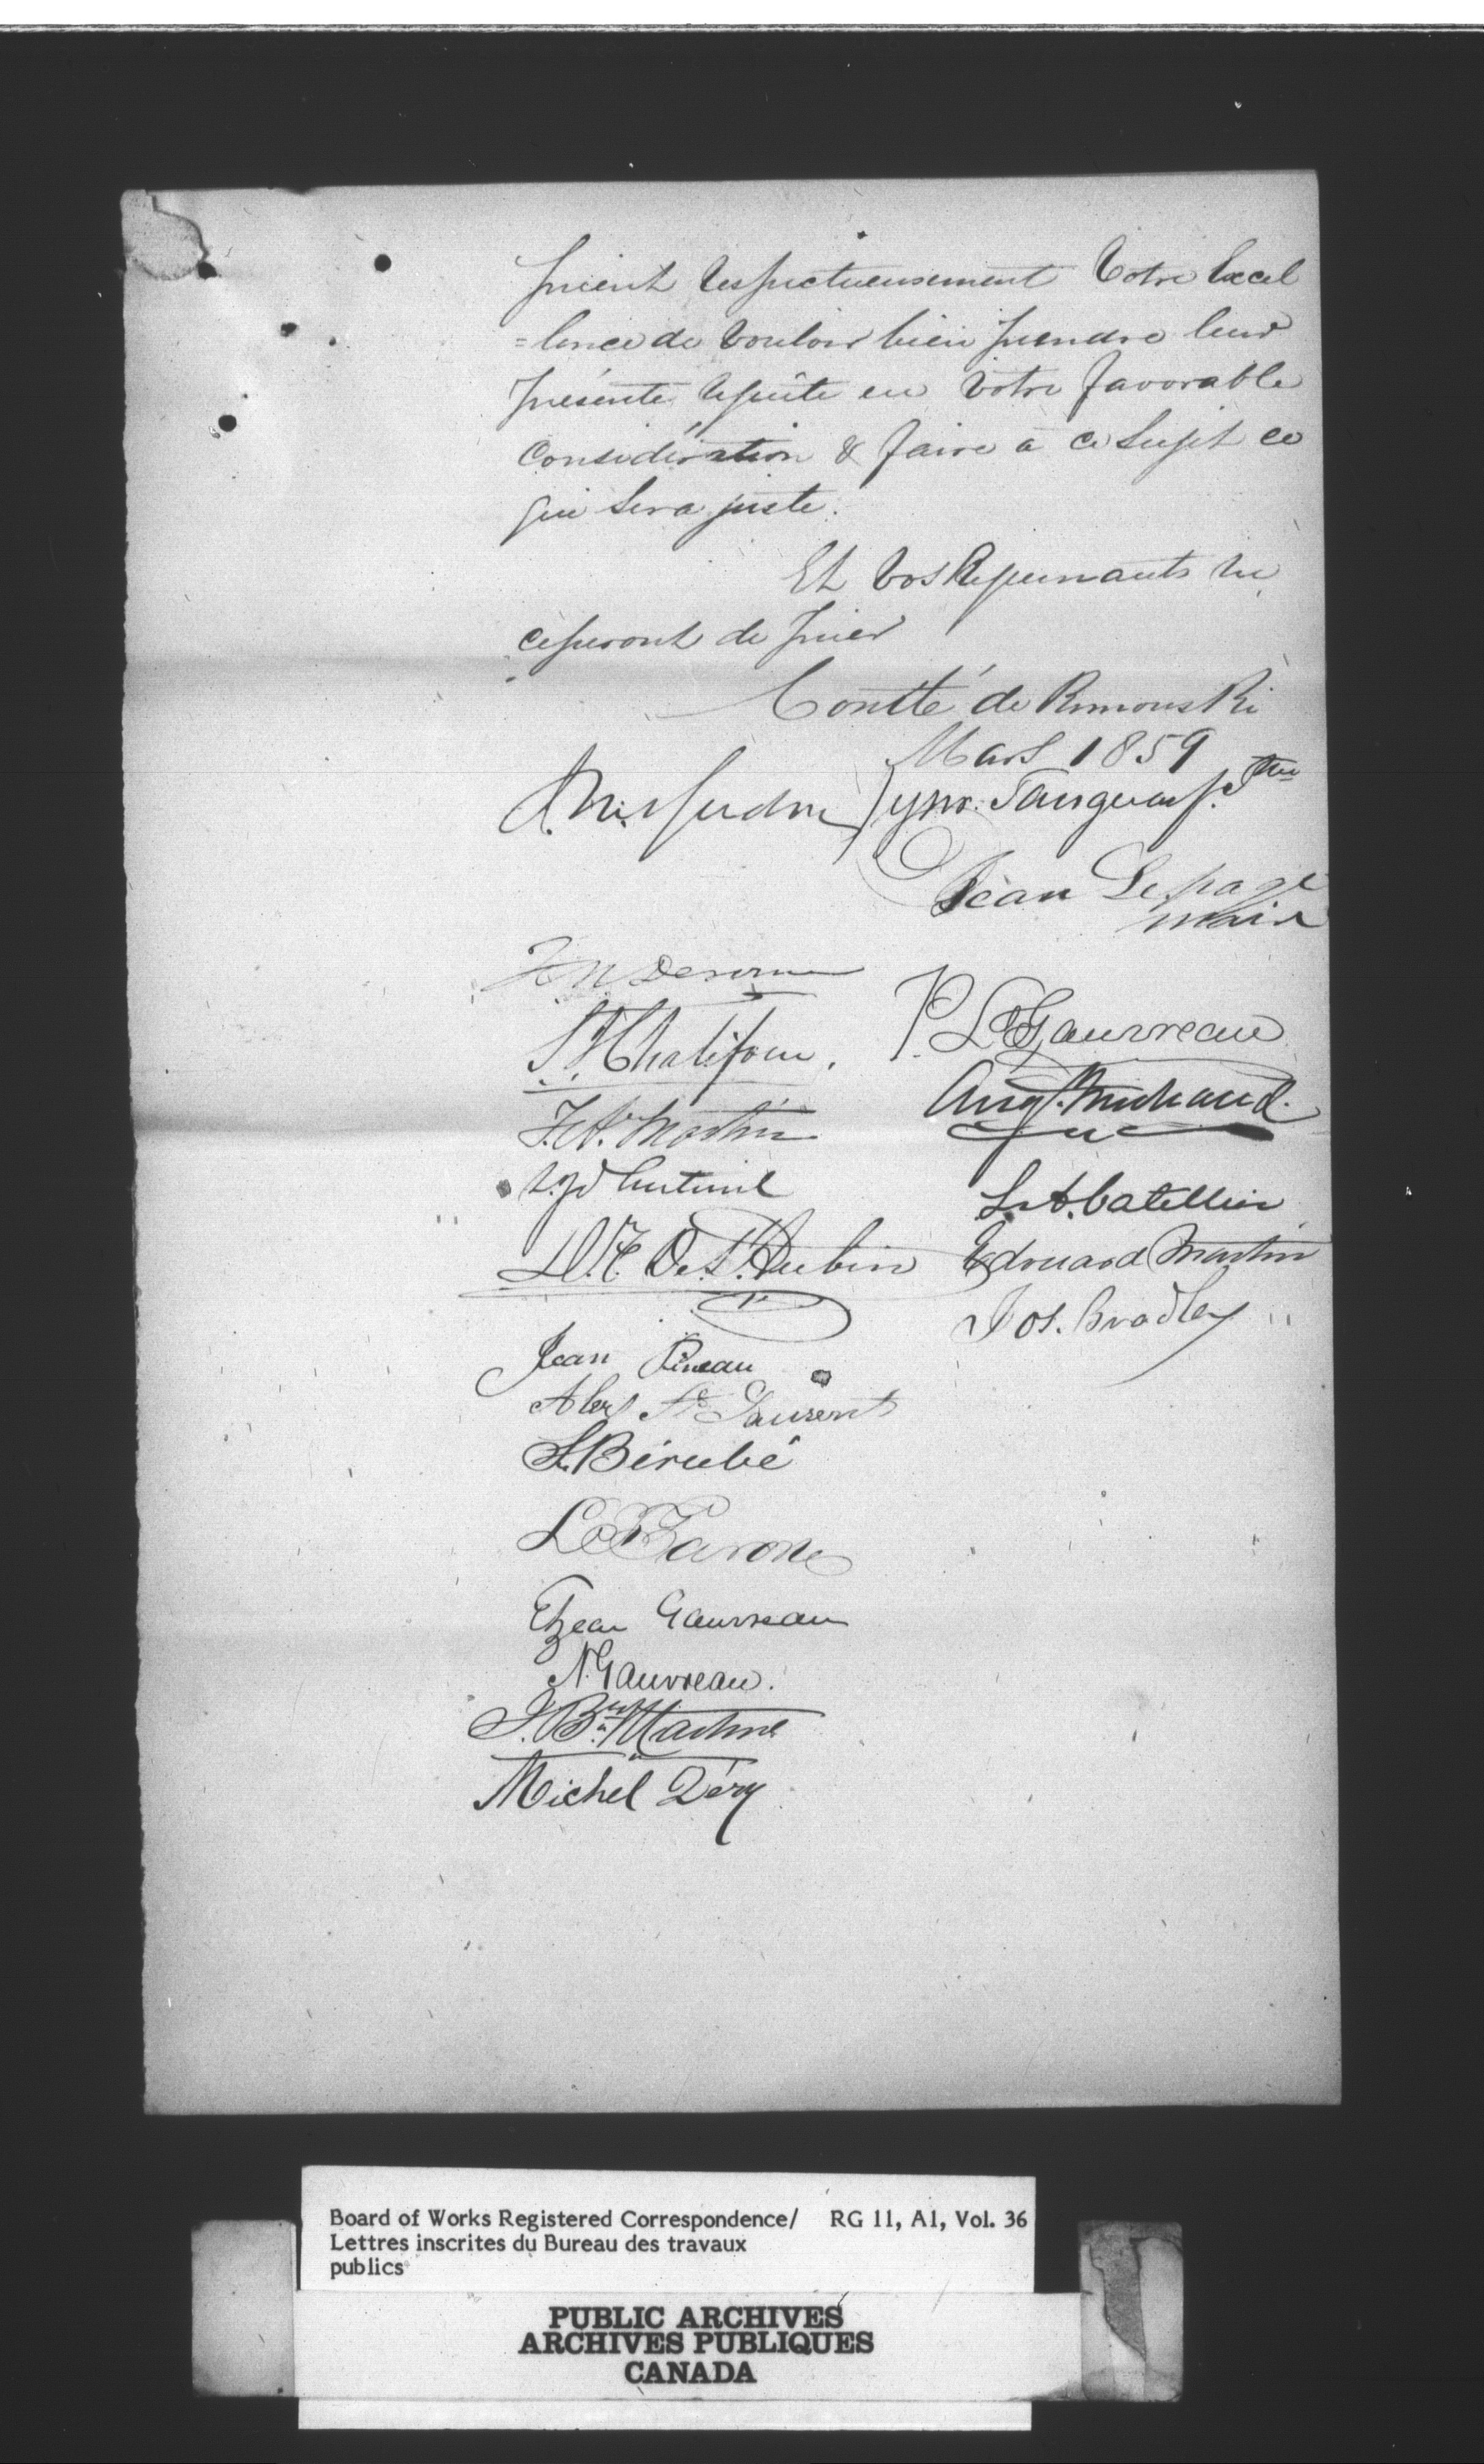 prient respectueusement Votre Excel
=lence de vouloir bien prendre leur
présente requête en votre favorable
considération & faire à ce sujet ce
qui sera juste.
Et vos Requérants ne
cesseront de prier
Comté de Rimouski
Mars 1859
Cypn. Tanguay Ptre
Jean Lepage
maire
P. L. Gauvreau
S. Chalifour.
Aug. Michaud.
Martin
L. A. Catellier
St. Aubin
Edouard Martin
Jos. Bradley
Jean Pineau
St Laurent
Bérubé
Garon
Elzear Gauvreau
N. Gauvreau.
J. Bte Martin
Michel Déry
Board of Works Registered Correspondence/ RG 11, A1, Vol. 36
Lettres inscrites du Bureau des travaux
publics
PUBLIC ARCHIVES
ARCHIVES PUBLIQUES
CANADA